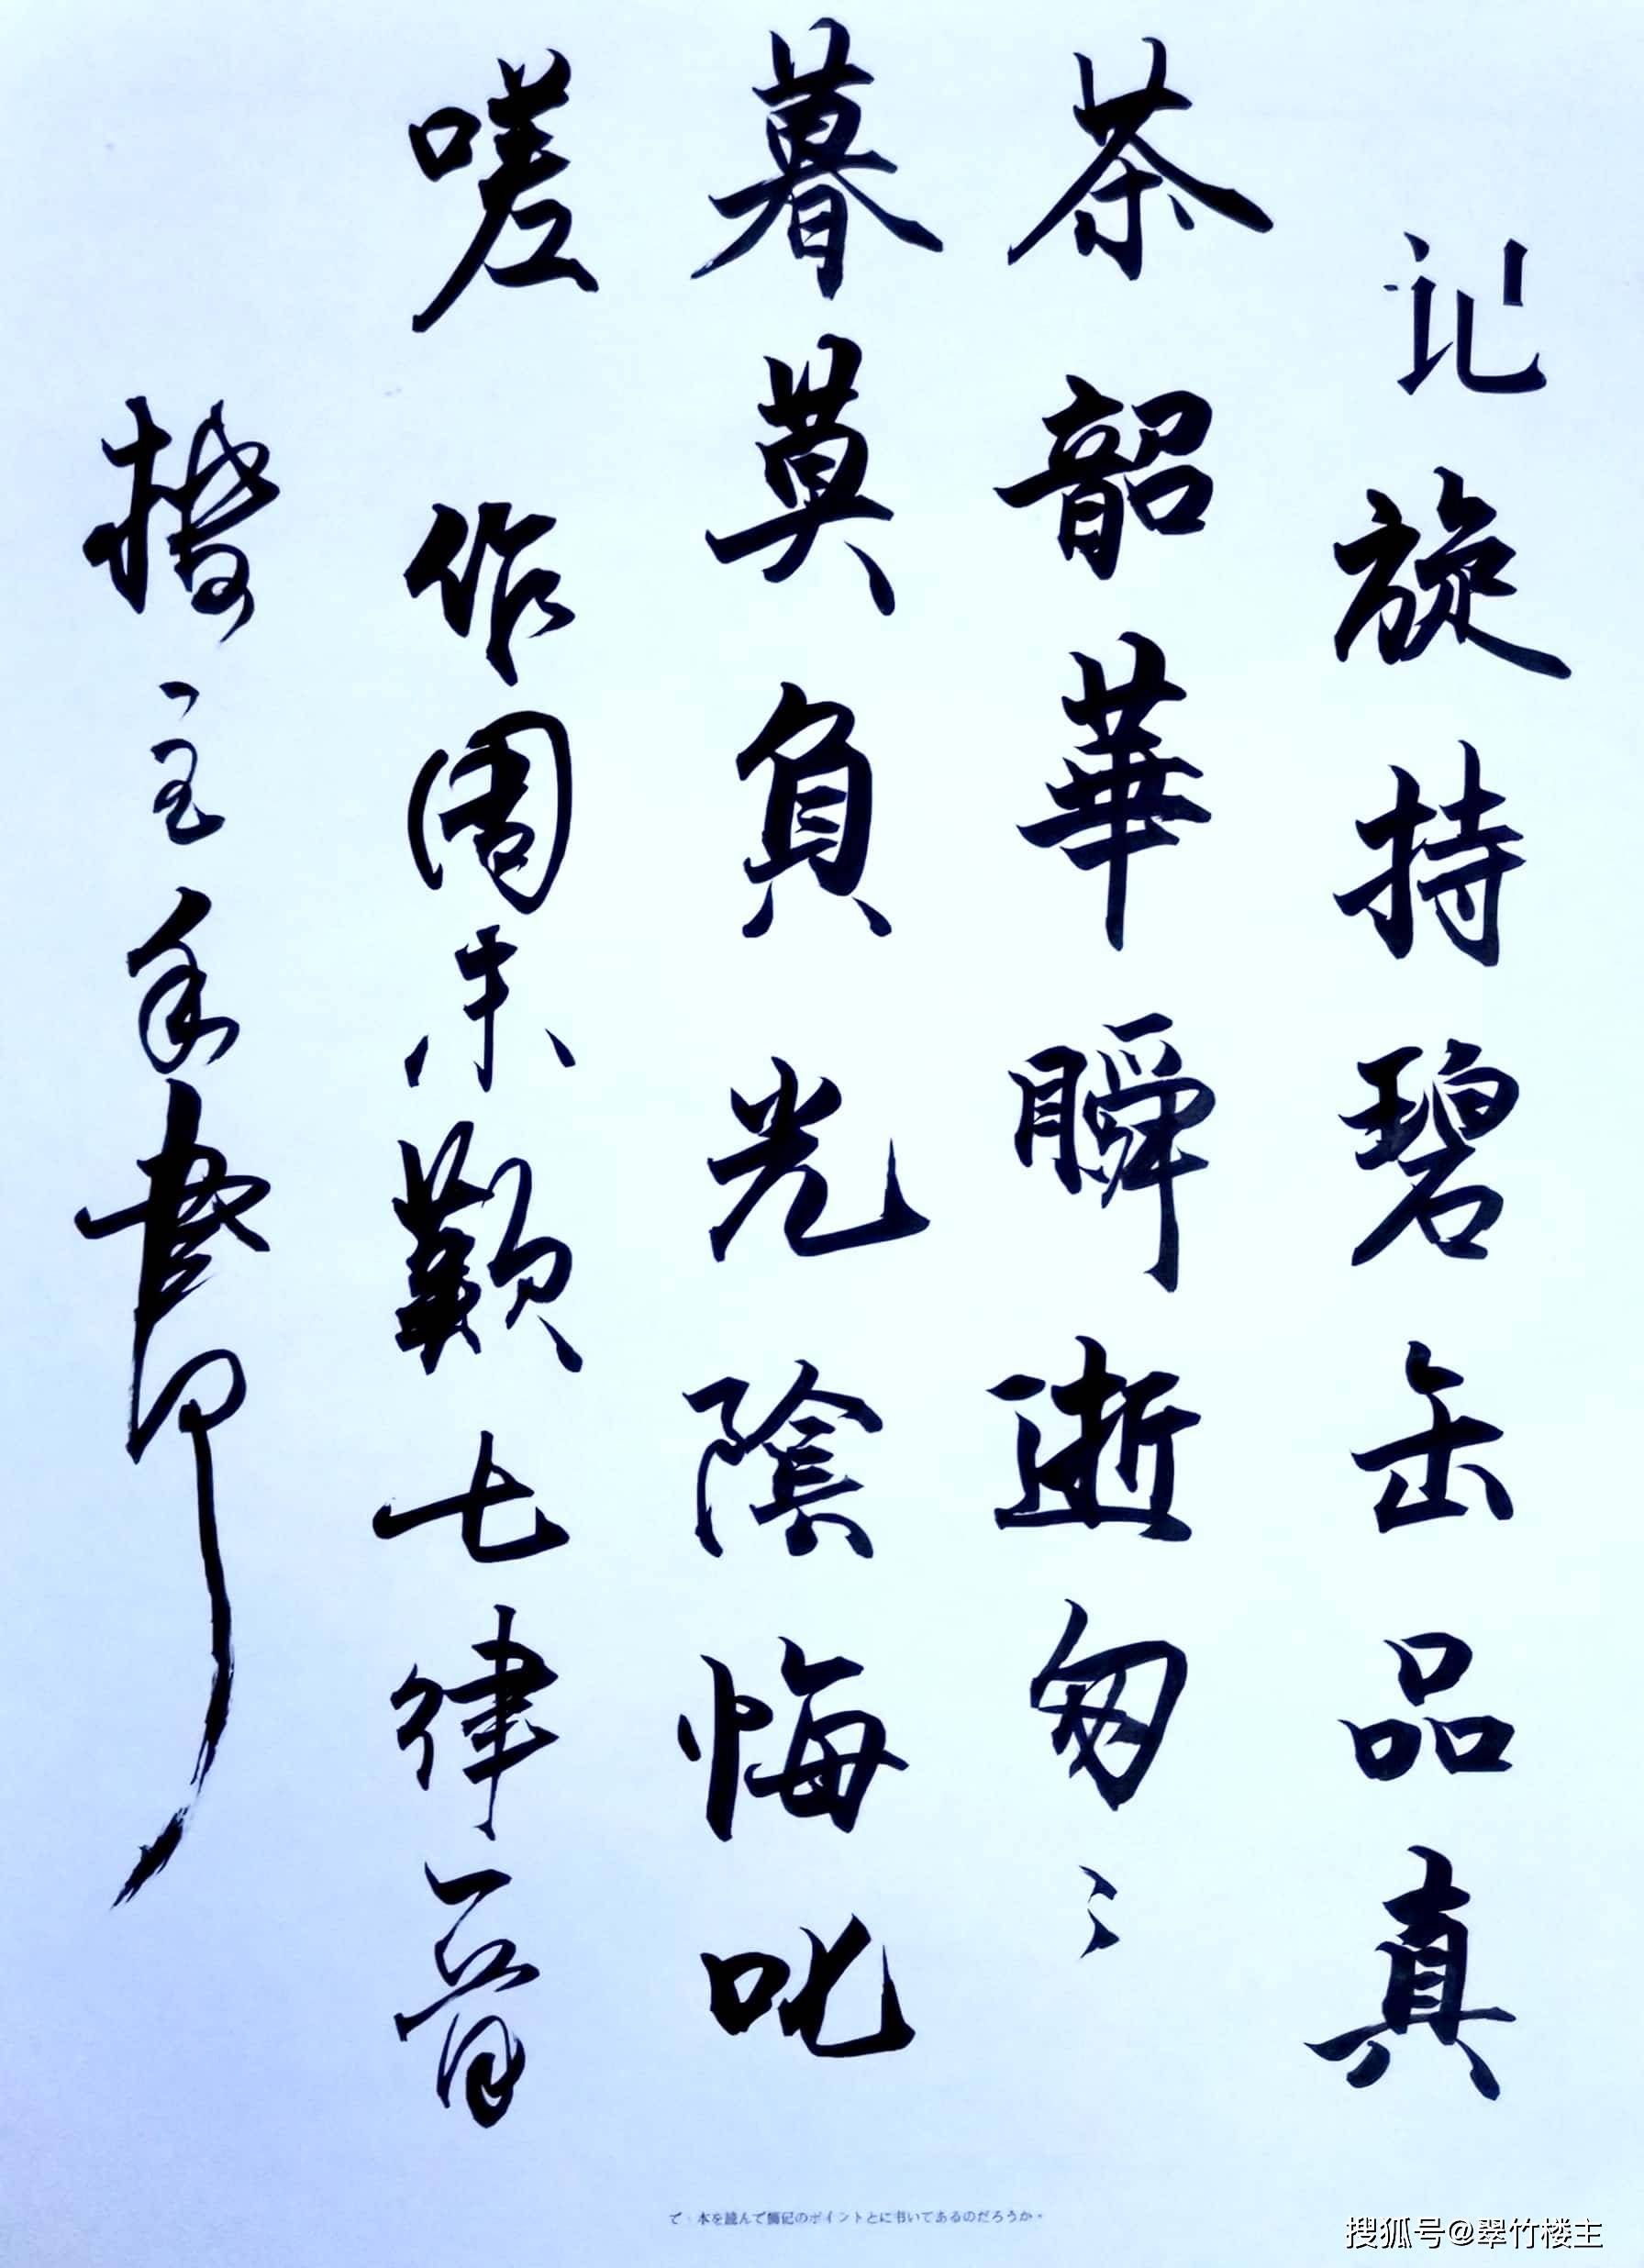 记旋持碧缶品真
茶韶華瞬逝匆〻
暮莫負光陰悔叱
嗟作周末歎七律一首
樓主
で、本を読んで記のポイントとに书いてあるのだろうか。
搜狐号@翠竹楼主